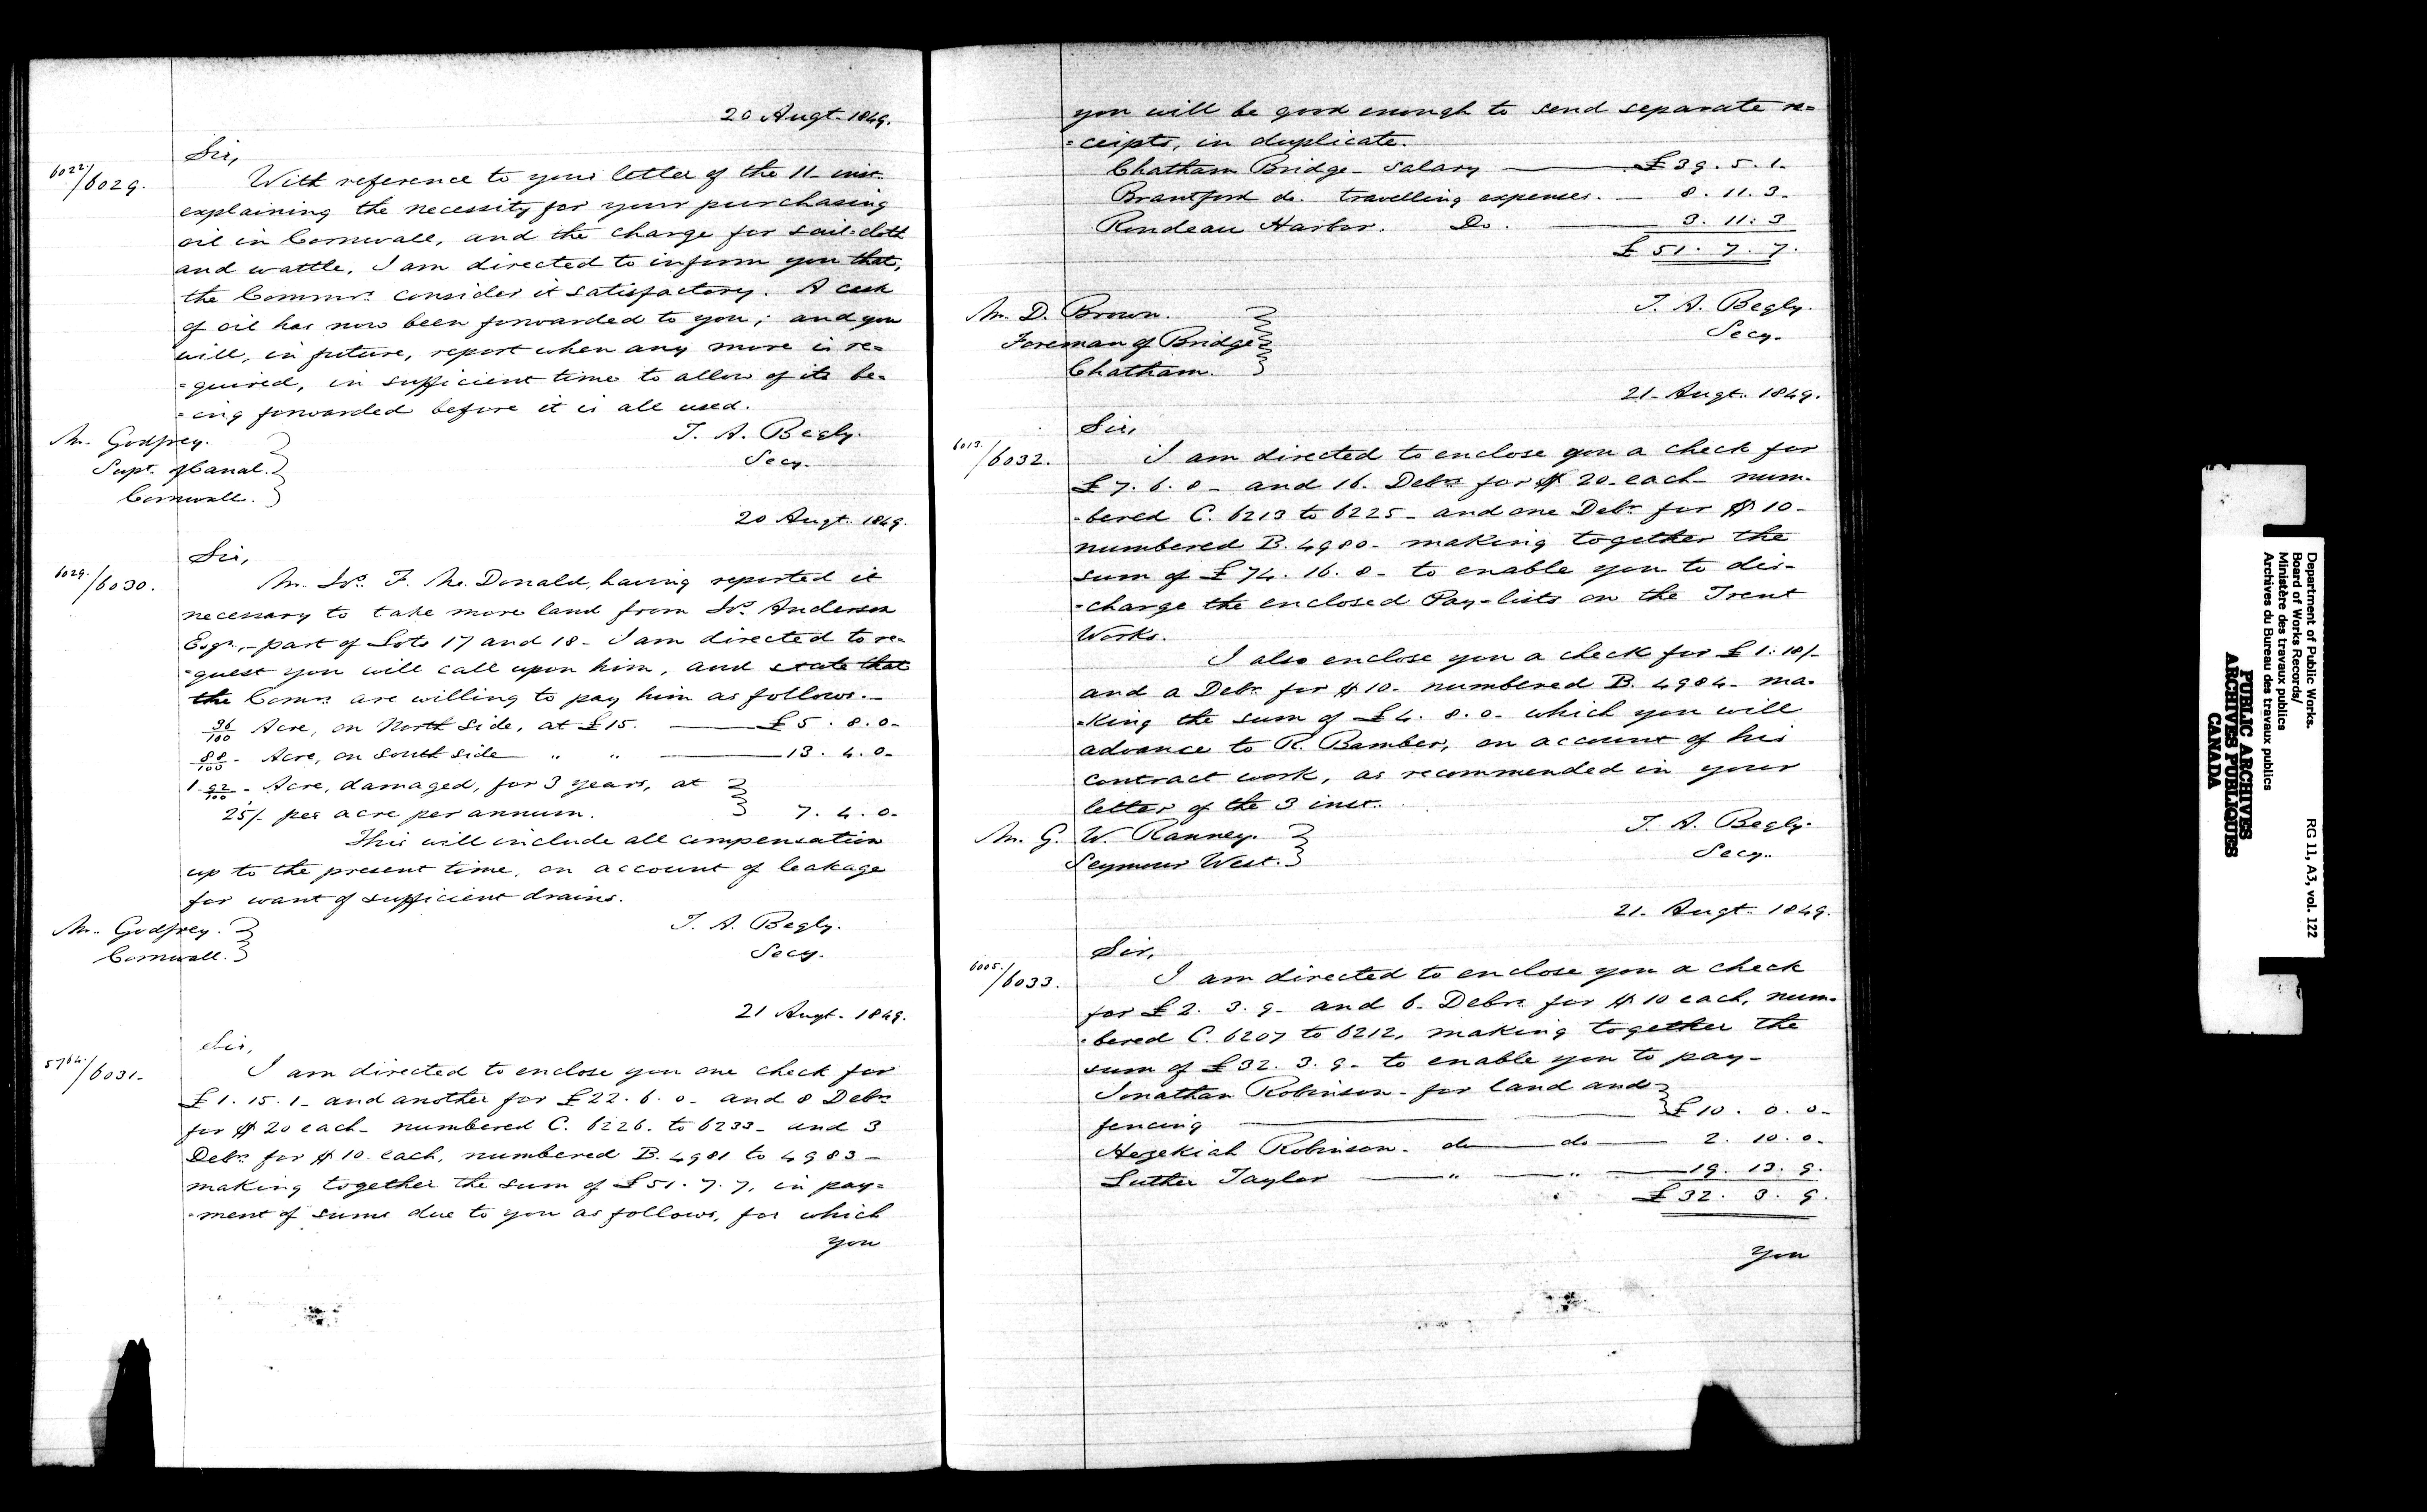 20 Augt. 1849.
Sir,
6022/6029.
With reference to your letter of the 11 inst.
explaining the necessity for your purchasing
oil in Cornwall, and the charge for sail-cloth
and wattle, I am directed to inform you that,
the Commrs. consider it satisfactory. A cask
of oil has now been forwarded to you; and you
will, in future, report when any more is re=
=quired, in sufficient time to allow of its be=
=ing forwarded before it is all used.
Mr. Godfrey.
T. A. Begly.
Supt. of Canal.
Secy.
Cornwall.
20 Augt. 1849.
Sir,
6029./6030.
Mr. F. Mc.Donald, having reported it
necessary to take more land from Anderson
Esqr.,- part of Lots 17 and 18- I am directed to re=
=quest you will call upon him, and state that
the Comrs. are willing to pay him as follows.-
36/100 Acre, on North side, at £15. £5. 8. 0-
88/100 - Acre, on South side " " 13. 4. 0-
1 92/100 - Acre, damaged, for 3 years, at
25/- per acre per annum. 7. 4. 0-
This will include all compensation
up to the present time, on account of leakage
for want of sufficient drains.
Mr. Godfrey.
T. A. Begly.
Cornwall.
Secy.
21 Augt. 1849.
Sir,
5764./6031-
I am directed to enclose you one check for
£1. 15. 1- and another for £22. 6. 0- and 8 Debrs
for $20 each- numbered C. 6226. to 6233- and 3
Debrs for $10. each, numbered B. 4981 to 4983-
making together the sum of £51. 7. 7, in pay=
=ment of sums due to you as follows, for which
you
you will be good enough to send separate re=
=ceipts, in duplicate.
Chatham Bridge- Salary £39. 5. 1-
Brantford do. travelling expenses. - 8. 11. 3-
Rondeau Harbor. Do. 3. 11: 3
£51. 7. 7.
T. A. Begly.
Mr. D. Brown.
Secy.
Foreman of Bridge
Chatham.
21- Augt. 1849.
Sir,
6013./6032.
I am directed to enclose you a check for
£7. 6. 8- and 16. Debrs for $20- each- num=
=bered C. 6213 to 6225- and one Debr for $10-
numbered B. 4980- making together the
sum of £74. 16. 8- to enable you to dis=
=charge the enclosed Pay-lists on the Trent
Works.
I also enclose you a check for £1: 18/-
and a Debr for $10- numbered B. 4984- ma=
=king the sum of £4. 8. 0- which you will
advance to R. Bamber, on account of his
contract work, as recommended in your
letter of the 3 inst.
T. A. Begly.
Mr. G. W. Ranney.
Secy.
Seymour West.
21. Augt. 1849.
Sir,
6005./6033.
I am directed to enclose you a check
for £2. 3. 9- and 6. Debrs for $10 each, num=
=bered C. 6207 to 6212, making together the
sum of £32. 3. 9- to enable you to pay-
Jonathan Robinson- for land and
fencing £10. 0. 0-
Hezekiah Robinson. do do 2. 10. 0-
Luther Taylor " " 19. 13. 9.
£32. 3. 9.
you
Department of Public Works.
Board of Works Records/
Ministère des travaux publics
Archives du Bureau des travaux publics
RG 11, A3, vol. 122
PUBLIC ARCHIVES
ARCHIVES PUBLIQUES
CANADA